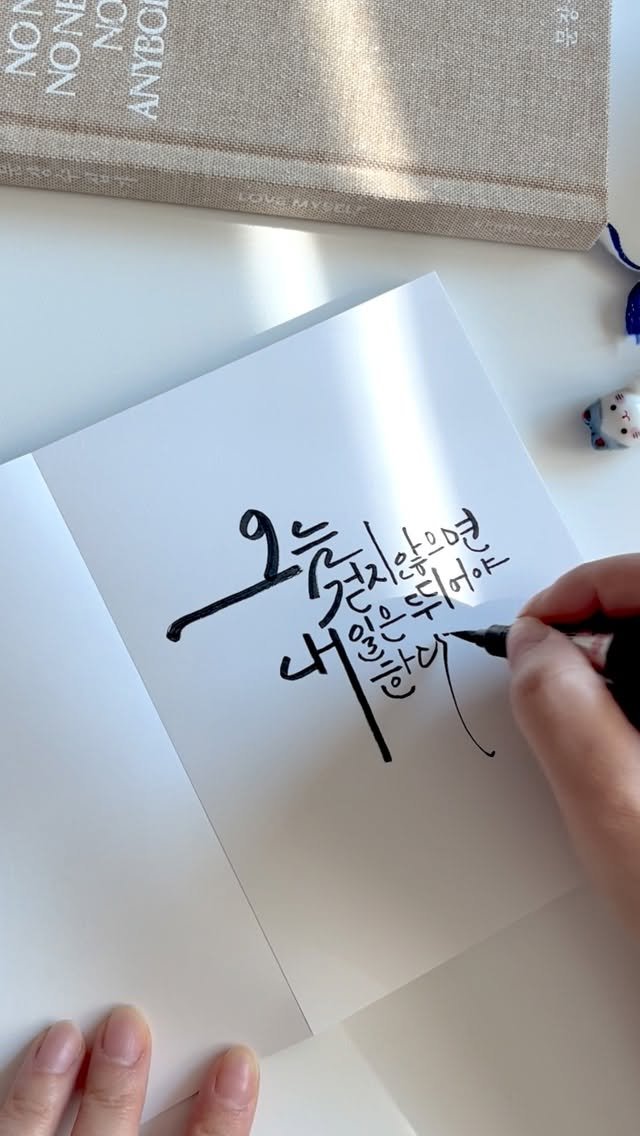 NO
NO
NO
LOVE MYSELF
오늘 걷지 않으면
내일은 뛰어야
한다